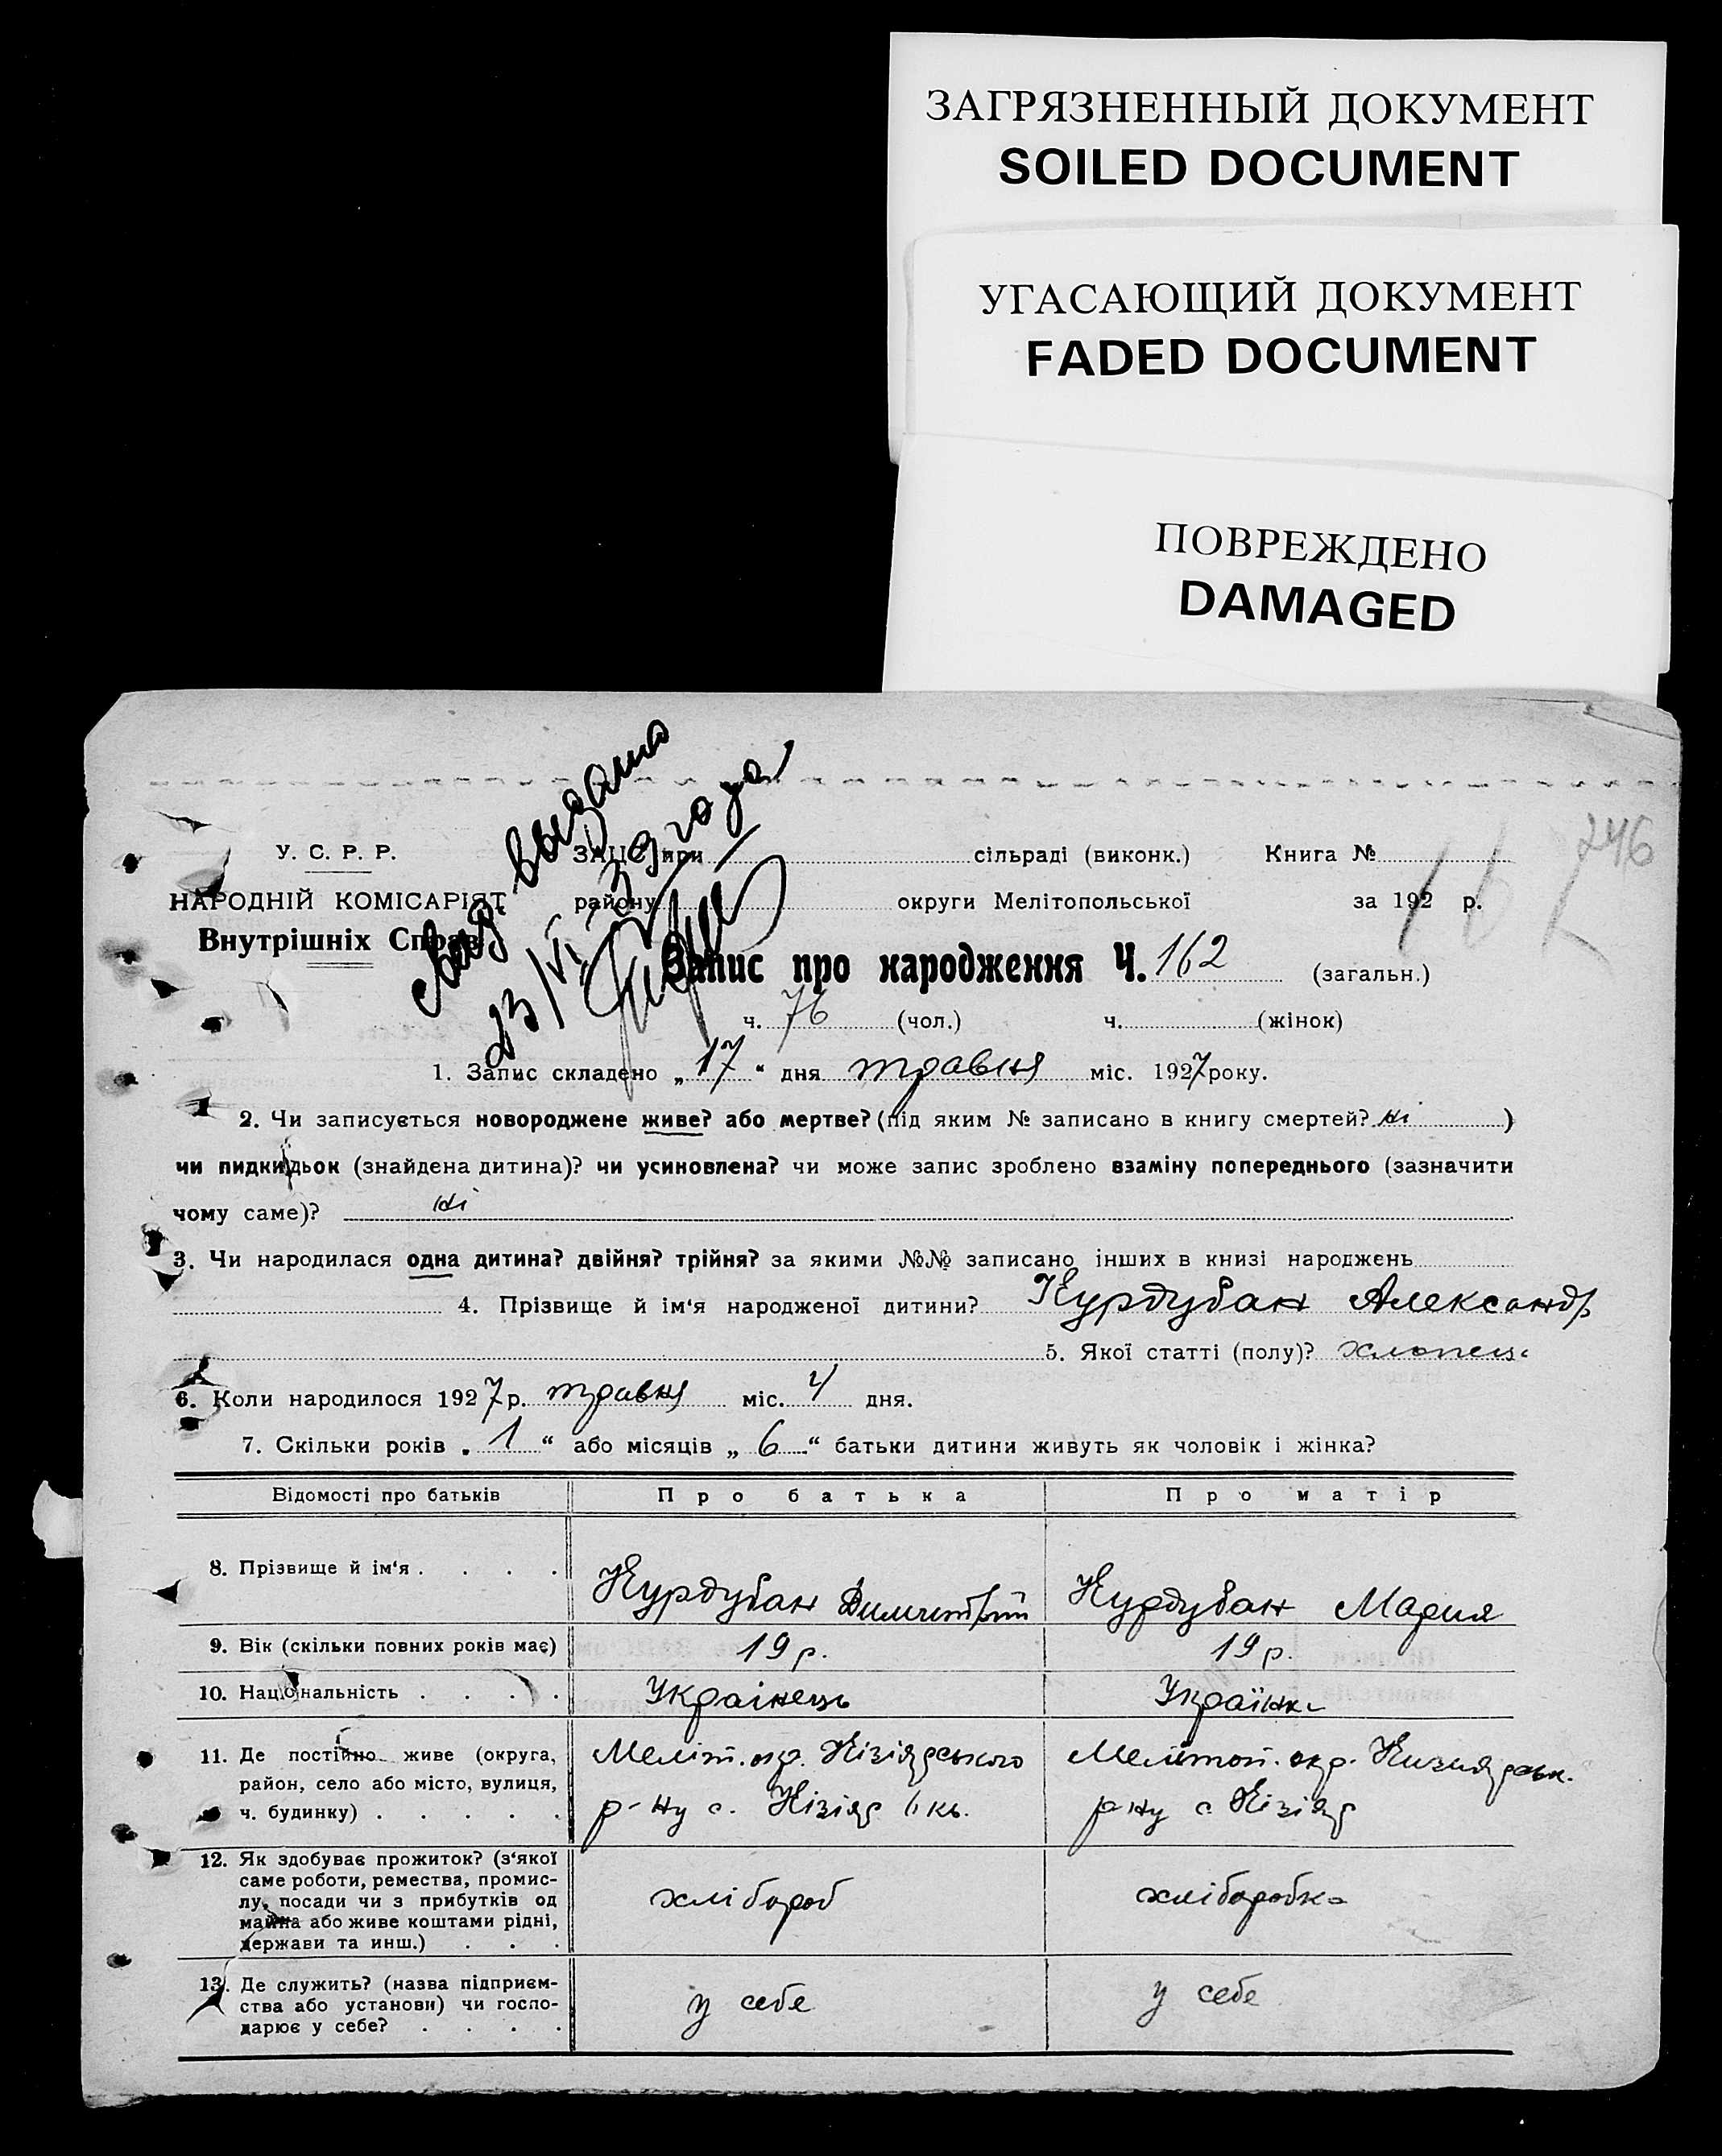 ЗАГРЯЗНЕННЫЙ ДОКУМЕНТ
SOILED DOCUMENT
УГАСАЮЩИЙ ДОКУМЕНТ
FADED DOCUMENT
ПОВРЕЖДЕНО
DAMAGED
246
162
Свид. выдано
23/VI 39 года
У. С. Р. Р.
НАРОДНІЙ КОМІСАРІЯТ
Внутрішніх Справ
ЗАЦС при сільраді (виконк.) Книга №
району округи Мелітопольської за 192 р.
Запис про народження Ч. 162 (загальн.)
ч. 76 (чол.) ч. (жінок)
1. Запис складено „17“ дня травня міс. 1927 року.
2. Чи записується новороджене живе? або мертве? (під яким № записано в книгу смертей? ні )
чи пидкидьок (знайдена дитина)? чи усиновлена? чи може запис зроблено взаміну попереднього (зазначити
чому саме)? ні
3. Чи народилася одна дитина? двійня? трійня? за якими №№ записано інших в книзі народжень
4. Прізвище й ім‘я народженої дитини? Курдубан Александр
5. Якої статті (полу)? хлопець
6. Коли народилося 1927 р. травня міс. 4 дня.
7. Скільки років „ 1 “ або місяців „ 6 “ батьки дитини живуть як чоловік і жінка?
Відомості про батьків Про батька Про матір
8. Прізвище й ім‘я . . . . Курдубан Димитрий Курдубан Мария
9. Вік (скільки повних років має) 19 р. 19 р.
10. Національність . . . . Українець Українка
11. Де постійно живе (округа, Меліт. окр. Кізіярського Мелітоп. окр. Кизиярськ.
район, село або місто, вулиця, р-ну с. Кізіяр р-ну с Кізіяр
ч. будинку) . . . . .
12. Як здобуває прожиток? (з‘якої
саме роботи, ремества, промис-
лу, посади чи з прибутків од хлібороб хліборобка
майна або живе коштами рідні,
держави та инш.) . . .
13. Де служить? (назва підприєм-
ства або установи) чи госпо- у себе у себе
дарює у себе? . . . .